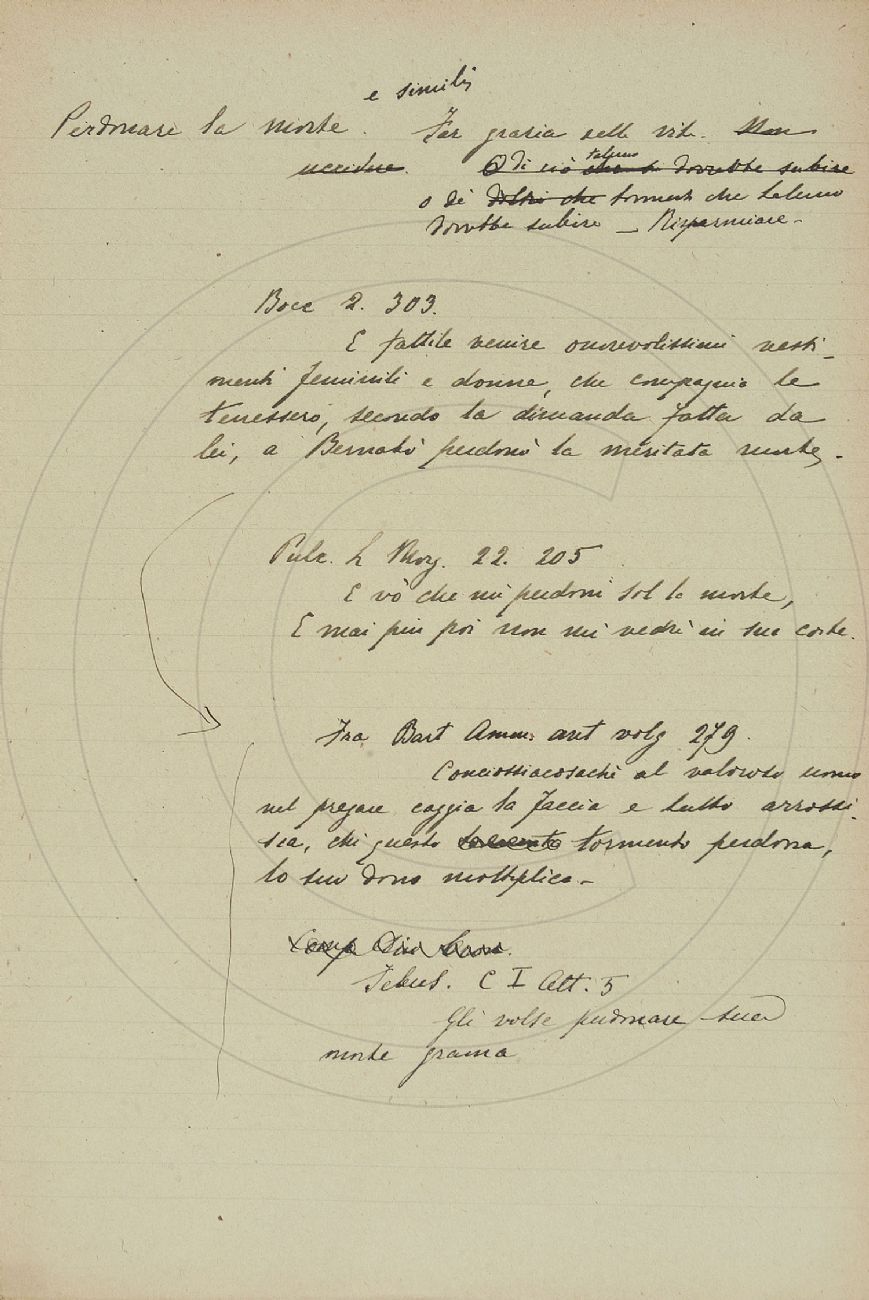 e simili
Perdonare la morte. Far grazia della vita. Non
uccidere. O di ciò talumo che si dovrebbe subire
o de' dolori che tormenti che talumo
dovrebbe subire — Risparmiare —
Bocc 2. 303.
E fattile venire onorevolissimi vesti-
menti feminili e donne, che compagnia le
tenessero, secondo la dimanda fatta da
lei, a Bernabò perdonò la meritata morte. -
Pulc. L Morg. 22. 205
E vò che mi perdoni sol la morte,
E mai più poi non mi vedrà in sua corte.
Fra Bart Amm: ant volg 279.
Conciossiacosachè al valoroso uomo
nel pregare caggia la faccia e tutto arrossi-
sca, chi questo tormento perdona,
lo suo dono moltiplica -
C I Att. 5
Gli volse perdonare sua
morte grama